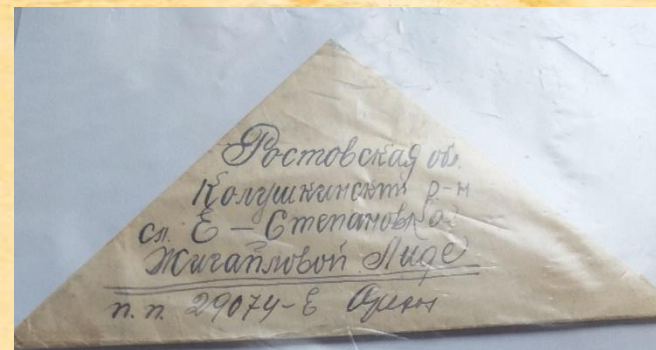 Ростовская об.
Колушкинский р-н
сл. Е-Степановка
Жигайловой Лиде
п.п. 29074-Е